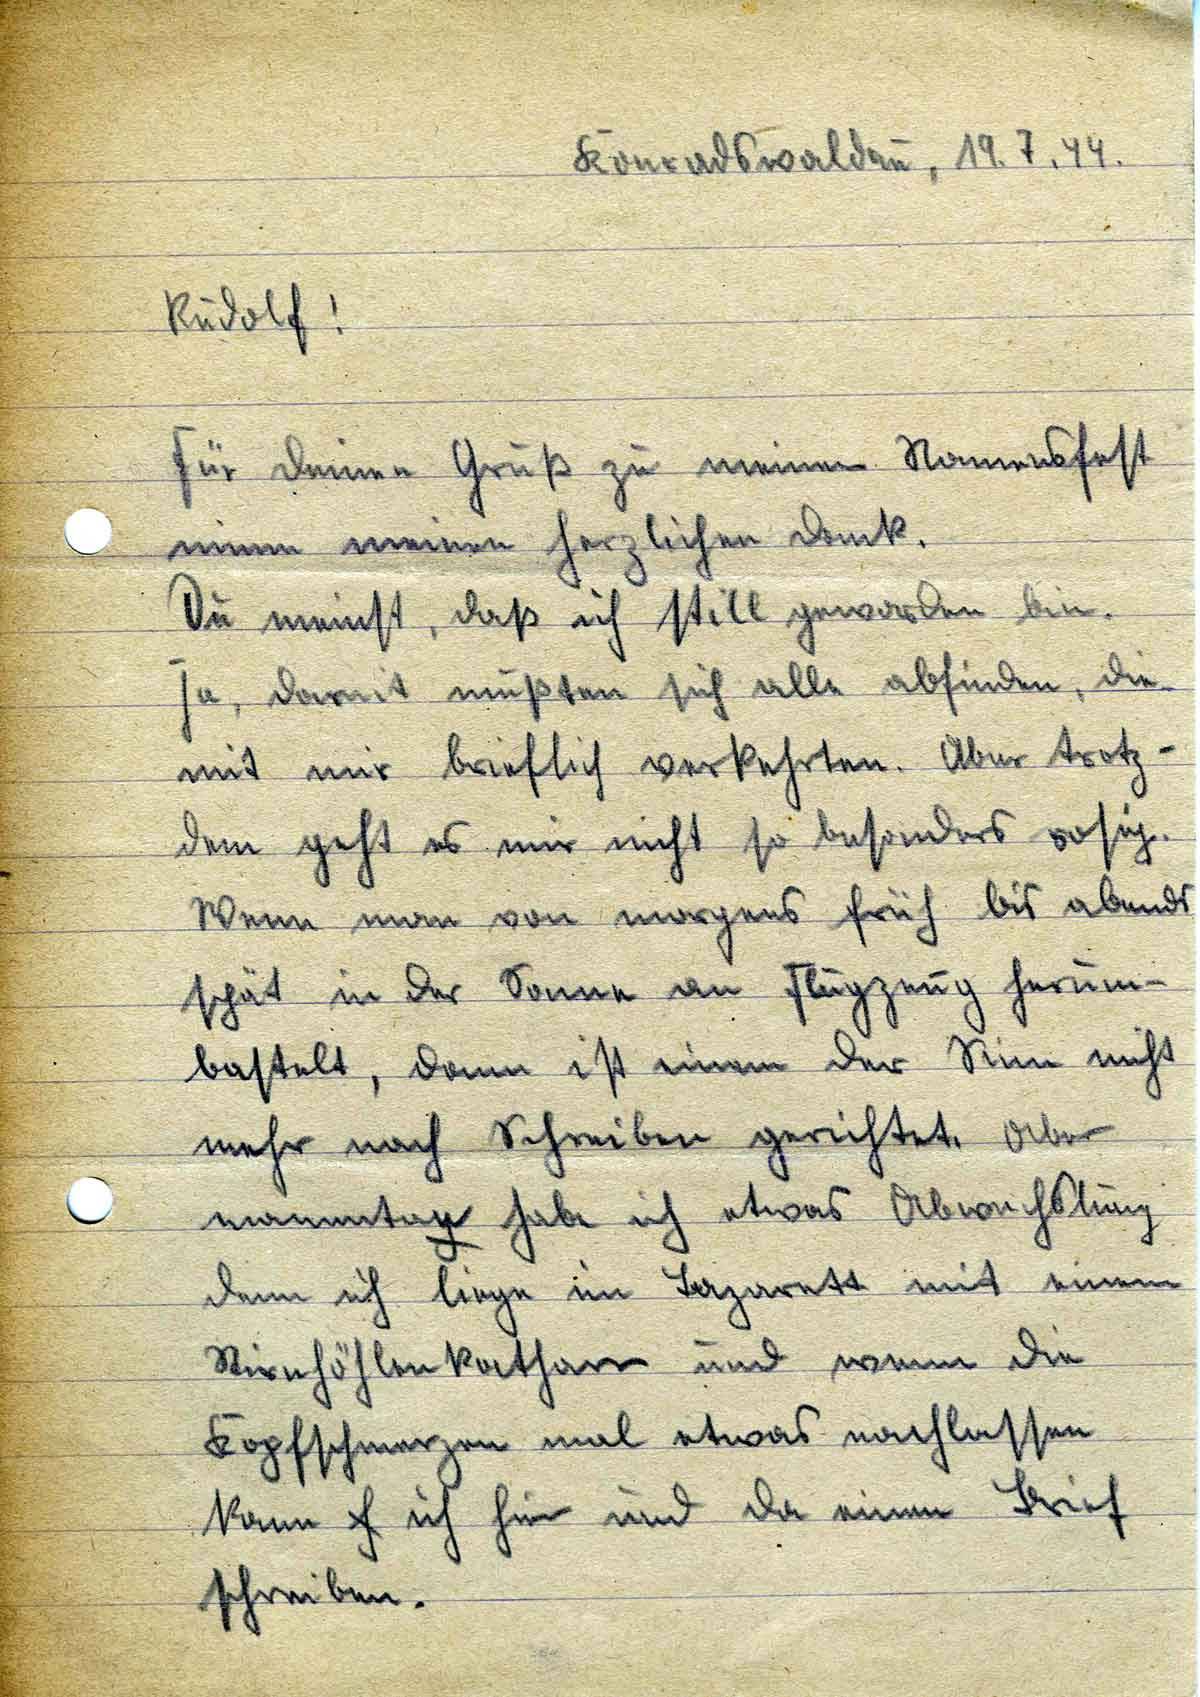 Konradswaldau, 19.7.44.
Rudolf!
Für deinen Gruß zu meinem Namensfest
nimm meinen herzlichen Dank.
Du meinst, daß ich still geworden bin.
Ja, damit mußten sich alle abfinden, die
mit mir brieflich verkehrten. Aber trotz-
dem geht es mir nicht so besonders rosig.
Wenn man von morgens früh bis abends
spät in der Sonne an Flugzeug herum-
bastelt, dann ist einem der Sinn nicht
mehr nach Schreiben gerichtet. Aber
momentan habe ich etwas Abwechslung
denn ich liege im Lazarett mit einem
Stirnhöhlenkatharr und wenn die
Kopfschmerzen mal etwas nachlassen
kann ich hie und da einen Brief
schreiben.